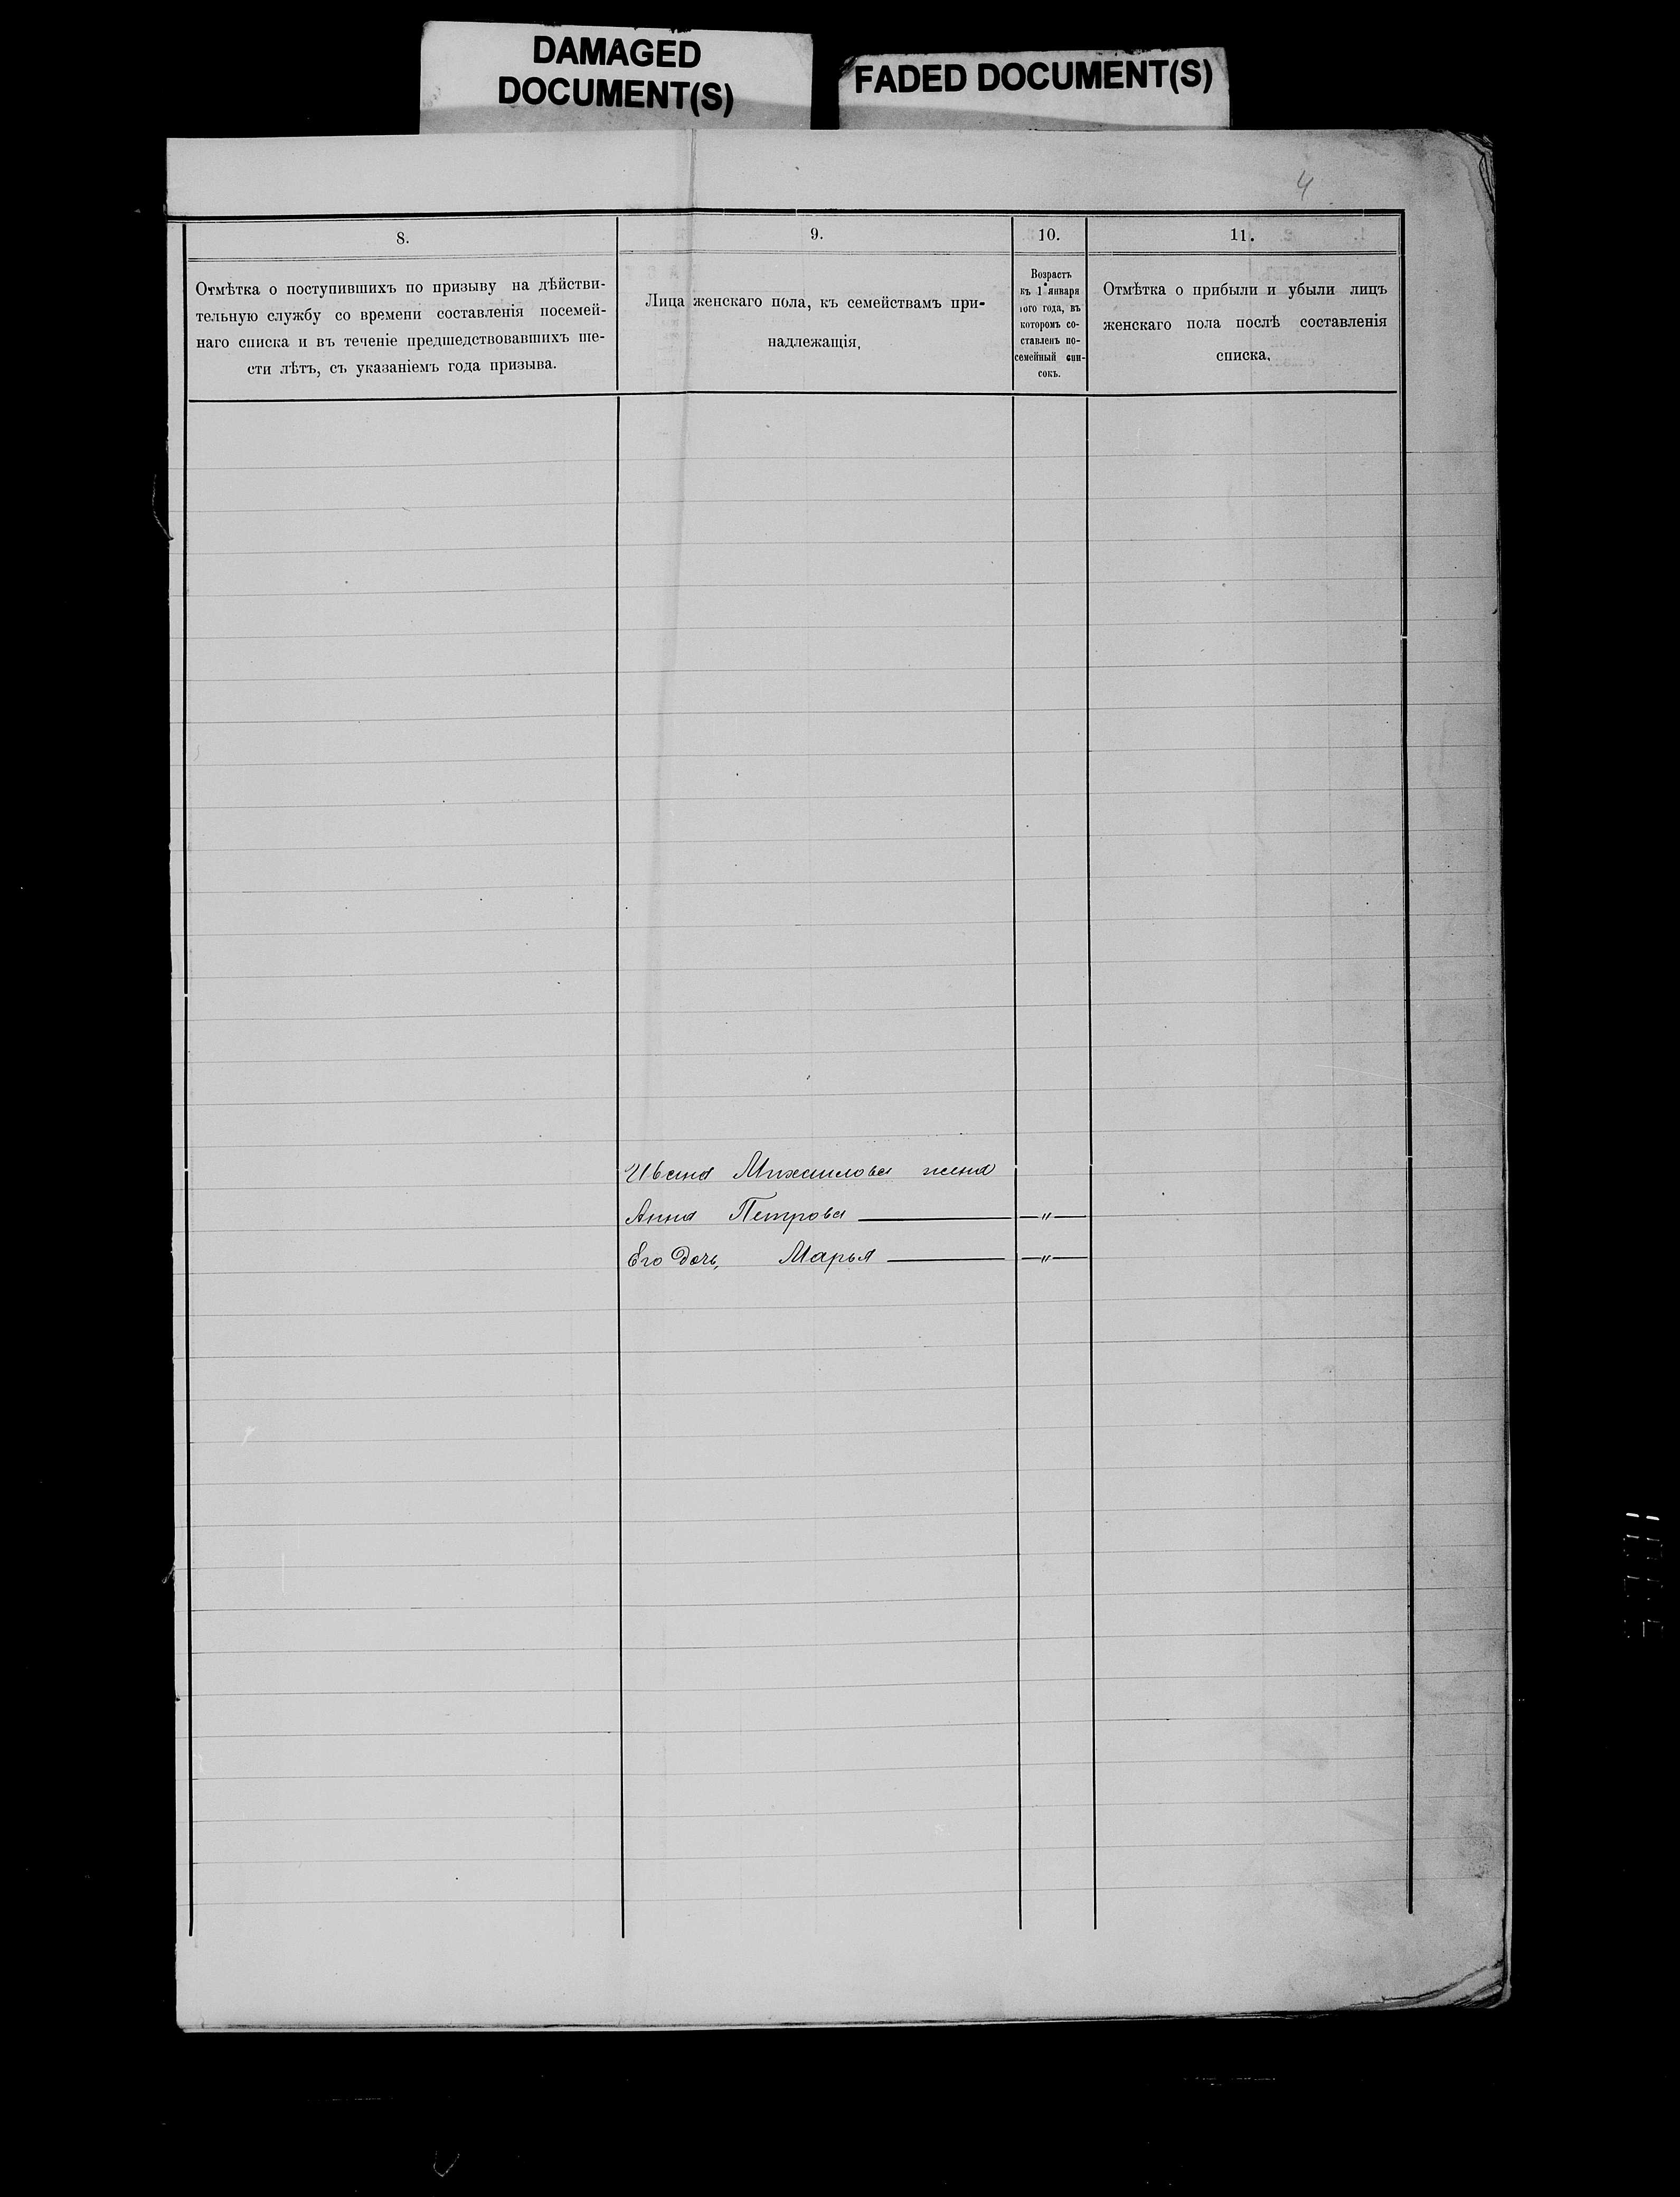 DAMAGED
DOCUMENT(S)
FADED DOCUMENT(S)
4
8.
Отмѣтка о поступившихъ по призыву на дѣйстви-
тельную службу со времени составленія посемей-
наго списка и въ теченіе предшедствовавшихъ ше-
сти лѣтъ, съ указаніемъ года призыва.
9.
Лица женскаго пола, къ семействамъ при-
надлежащія,
10.
Возрастъ
къ 1 января
того года, въ
которомъ со-
ставленъ по-
семейный спи-
сокъ.
11.
Отмѣтка о прибыли и убыли лицъ
женскаго пола послѣ составленія
списка.
Ивана Михаилова жена
Анна Петрова — „ —
Его дочь, Марья — „ —